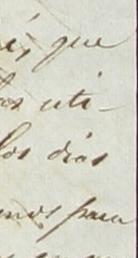 é, que
los uti-
los dias
mos para